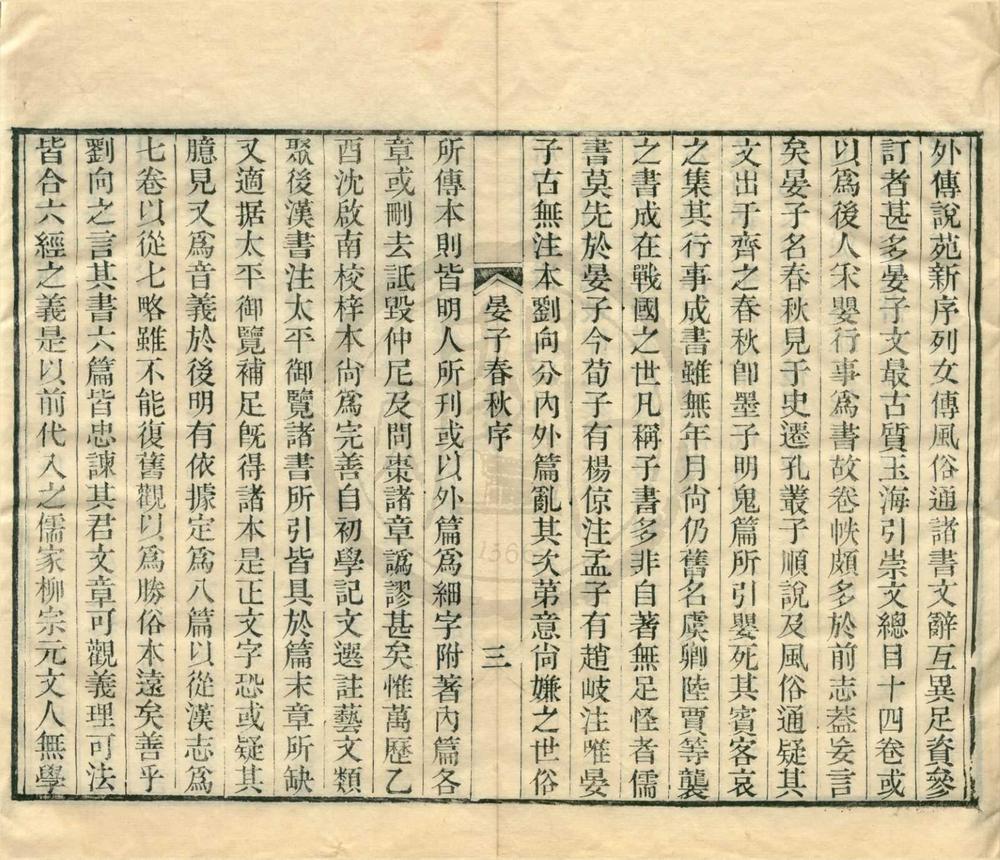 外傳說苑新序列女傳風俗通諸書文辭互異足資參
訂者甚多晏子文最古質玉海引崇文總目十四卷或
以爲後人采嬰行事爲書故卷帙頗多於前志葢妄言
矣晏子名春秋見于史遷孔叢子順說及風俗通疑其
文出于齊之春秋卽墨子明鬼篇所引嬰死其賓客哀
之集其行事成書雖無年月尙仍舊名虞卿陸賈等襲
之書成在戰國之世凡稱子書多非自著無足怪者儒
書莫先於晏子今荀子有楊倞注孟子有趙岐注唯晏
子古無注本劉向分內外篇亂其次第意尙嫌之世俗
晏子春秋序
三
所傳本則皆明人所刊或以外篇爲細字附著內篇各
章或刪去詆毀仲尼及問棗諸章譌謬甚矣惟萬歷乙
酉沈啟南校梓本尙爲完善自初學記文選註藝文類
聚後漢書注太平御覽諸書所引皆具於篇末章所缺
又適据太平御覽補足旣得諸本是正文字恐或疑其
臆見又爲音義於後明有依據定爲八篇以從漢志爲
七卷以從七略雖不能復舊觀以爲勝俗本遠矣善乎
劉向之言其書六篇皆忠諫其君文章可觀義理可法
皆合六經之義是以前代入之儒家柳宗元文人無學